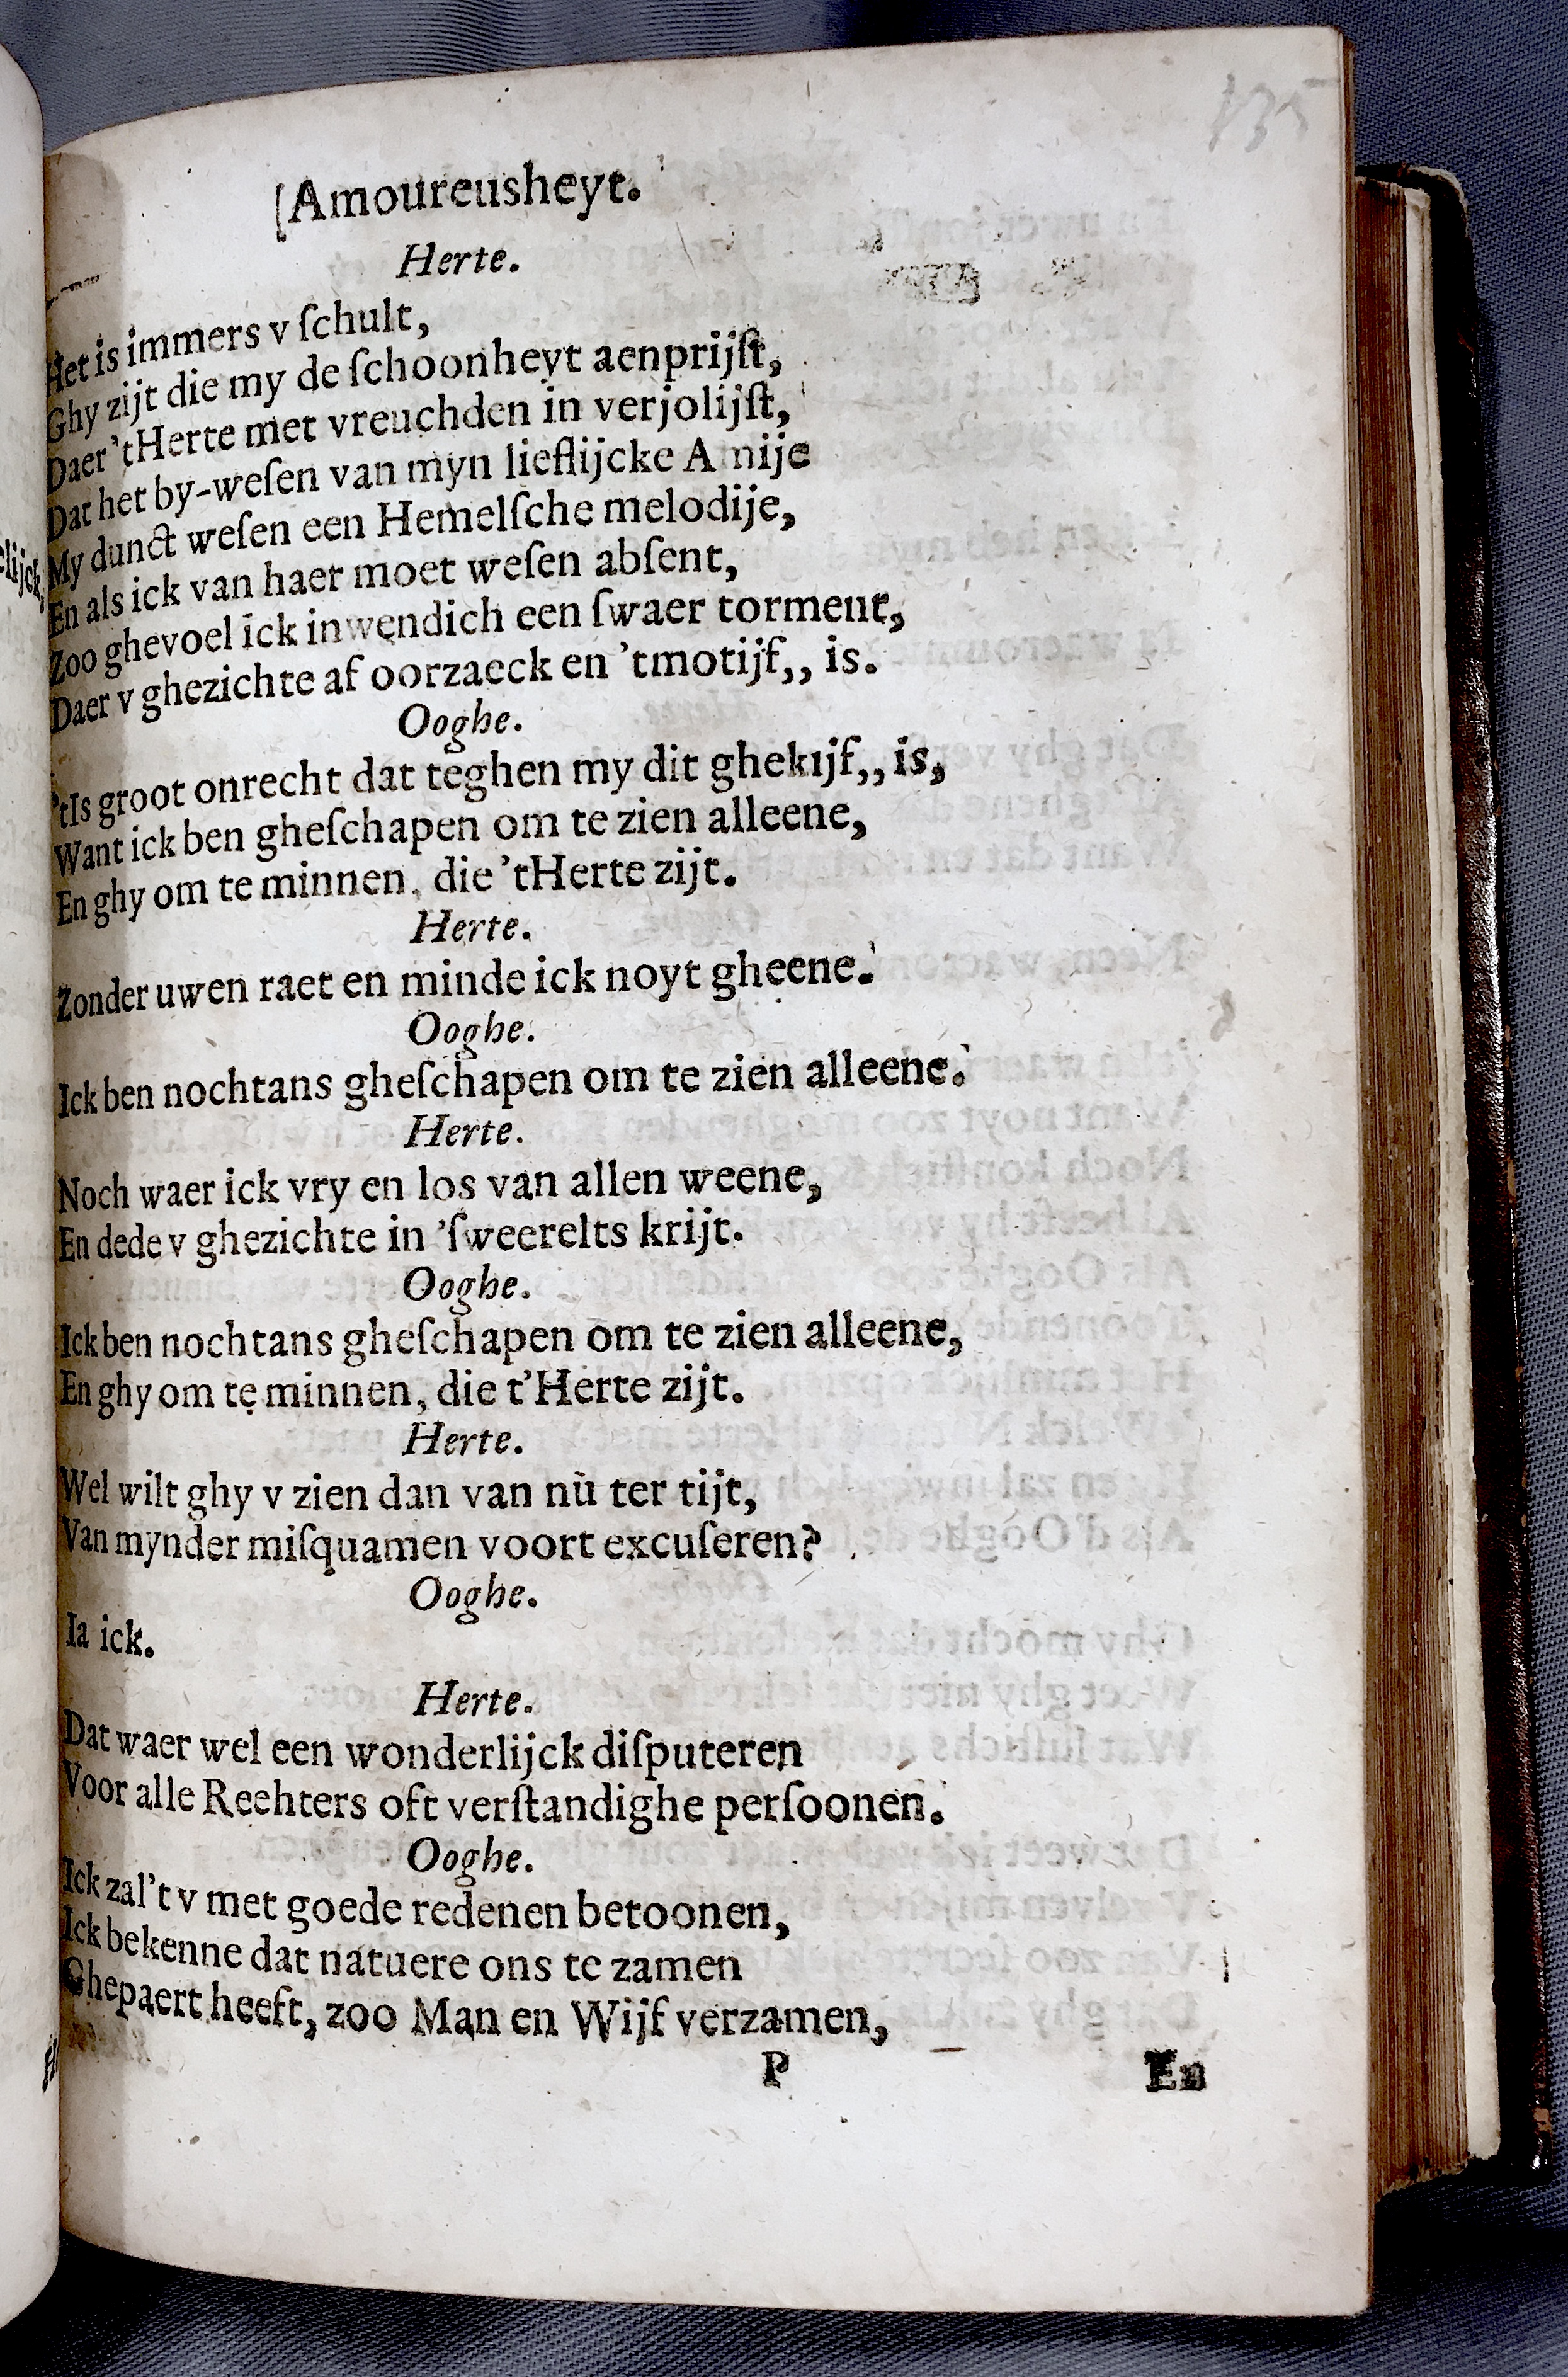 135
Amoureusheyt.
Herte.
Het is immers v ſchult,
Ghy zijt die my de ſchoonheyt aenprijſt,
Daer 'tHerte met vreuchden in verjolijſt,
Dat het by-weſen van myn lieflijcke Amije
My dunct weſen een Hemelſche melodije,
En als ick van haer moet weſen abſent,
Zoo ghevoel ick inwendich een ſwaer torment,
Daer v ghezichte af oorzaeck en 'tmotijf,, is.
Ooghe.
'tIs groot onrecht dat teghen my dit ghekijf,, is,
Want ick ben gheſchapen om te zien alleene,
En ghy om te minnen, die 'tHerte zijt.
Herte.
Zonder uwen raet en minde ick noyt gheene.
Ooghe.
Ick ben nochtans gheſchapen om te zien alleene.
Herte.
Noch waer ick vry en los van allen weene,
En dede v ghezichte in 'ſweerelts krijt.
Ooghe.
Ick ben nochtans gheſchapen om te zien alleene,
En ghy om te minnen, die t'Herte zijt.
Herte.
Wel wilt ghy v zien dan van nù ter tijt,
Van mynder miſquamen voort excuſeren?
Ooghe.
Ia ick.
Herte.
Dat waer wel een wonderlijck diſputeren
Voor alle Reehters oft verſtandighe perſoonen.
Ooghe.
Ick zal't v met goede redenen betoonen,
Ick bekenne dat natuere ons te zamen
Ghepaert heeft, zoo Man en Wijf verzamen,
P En